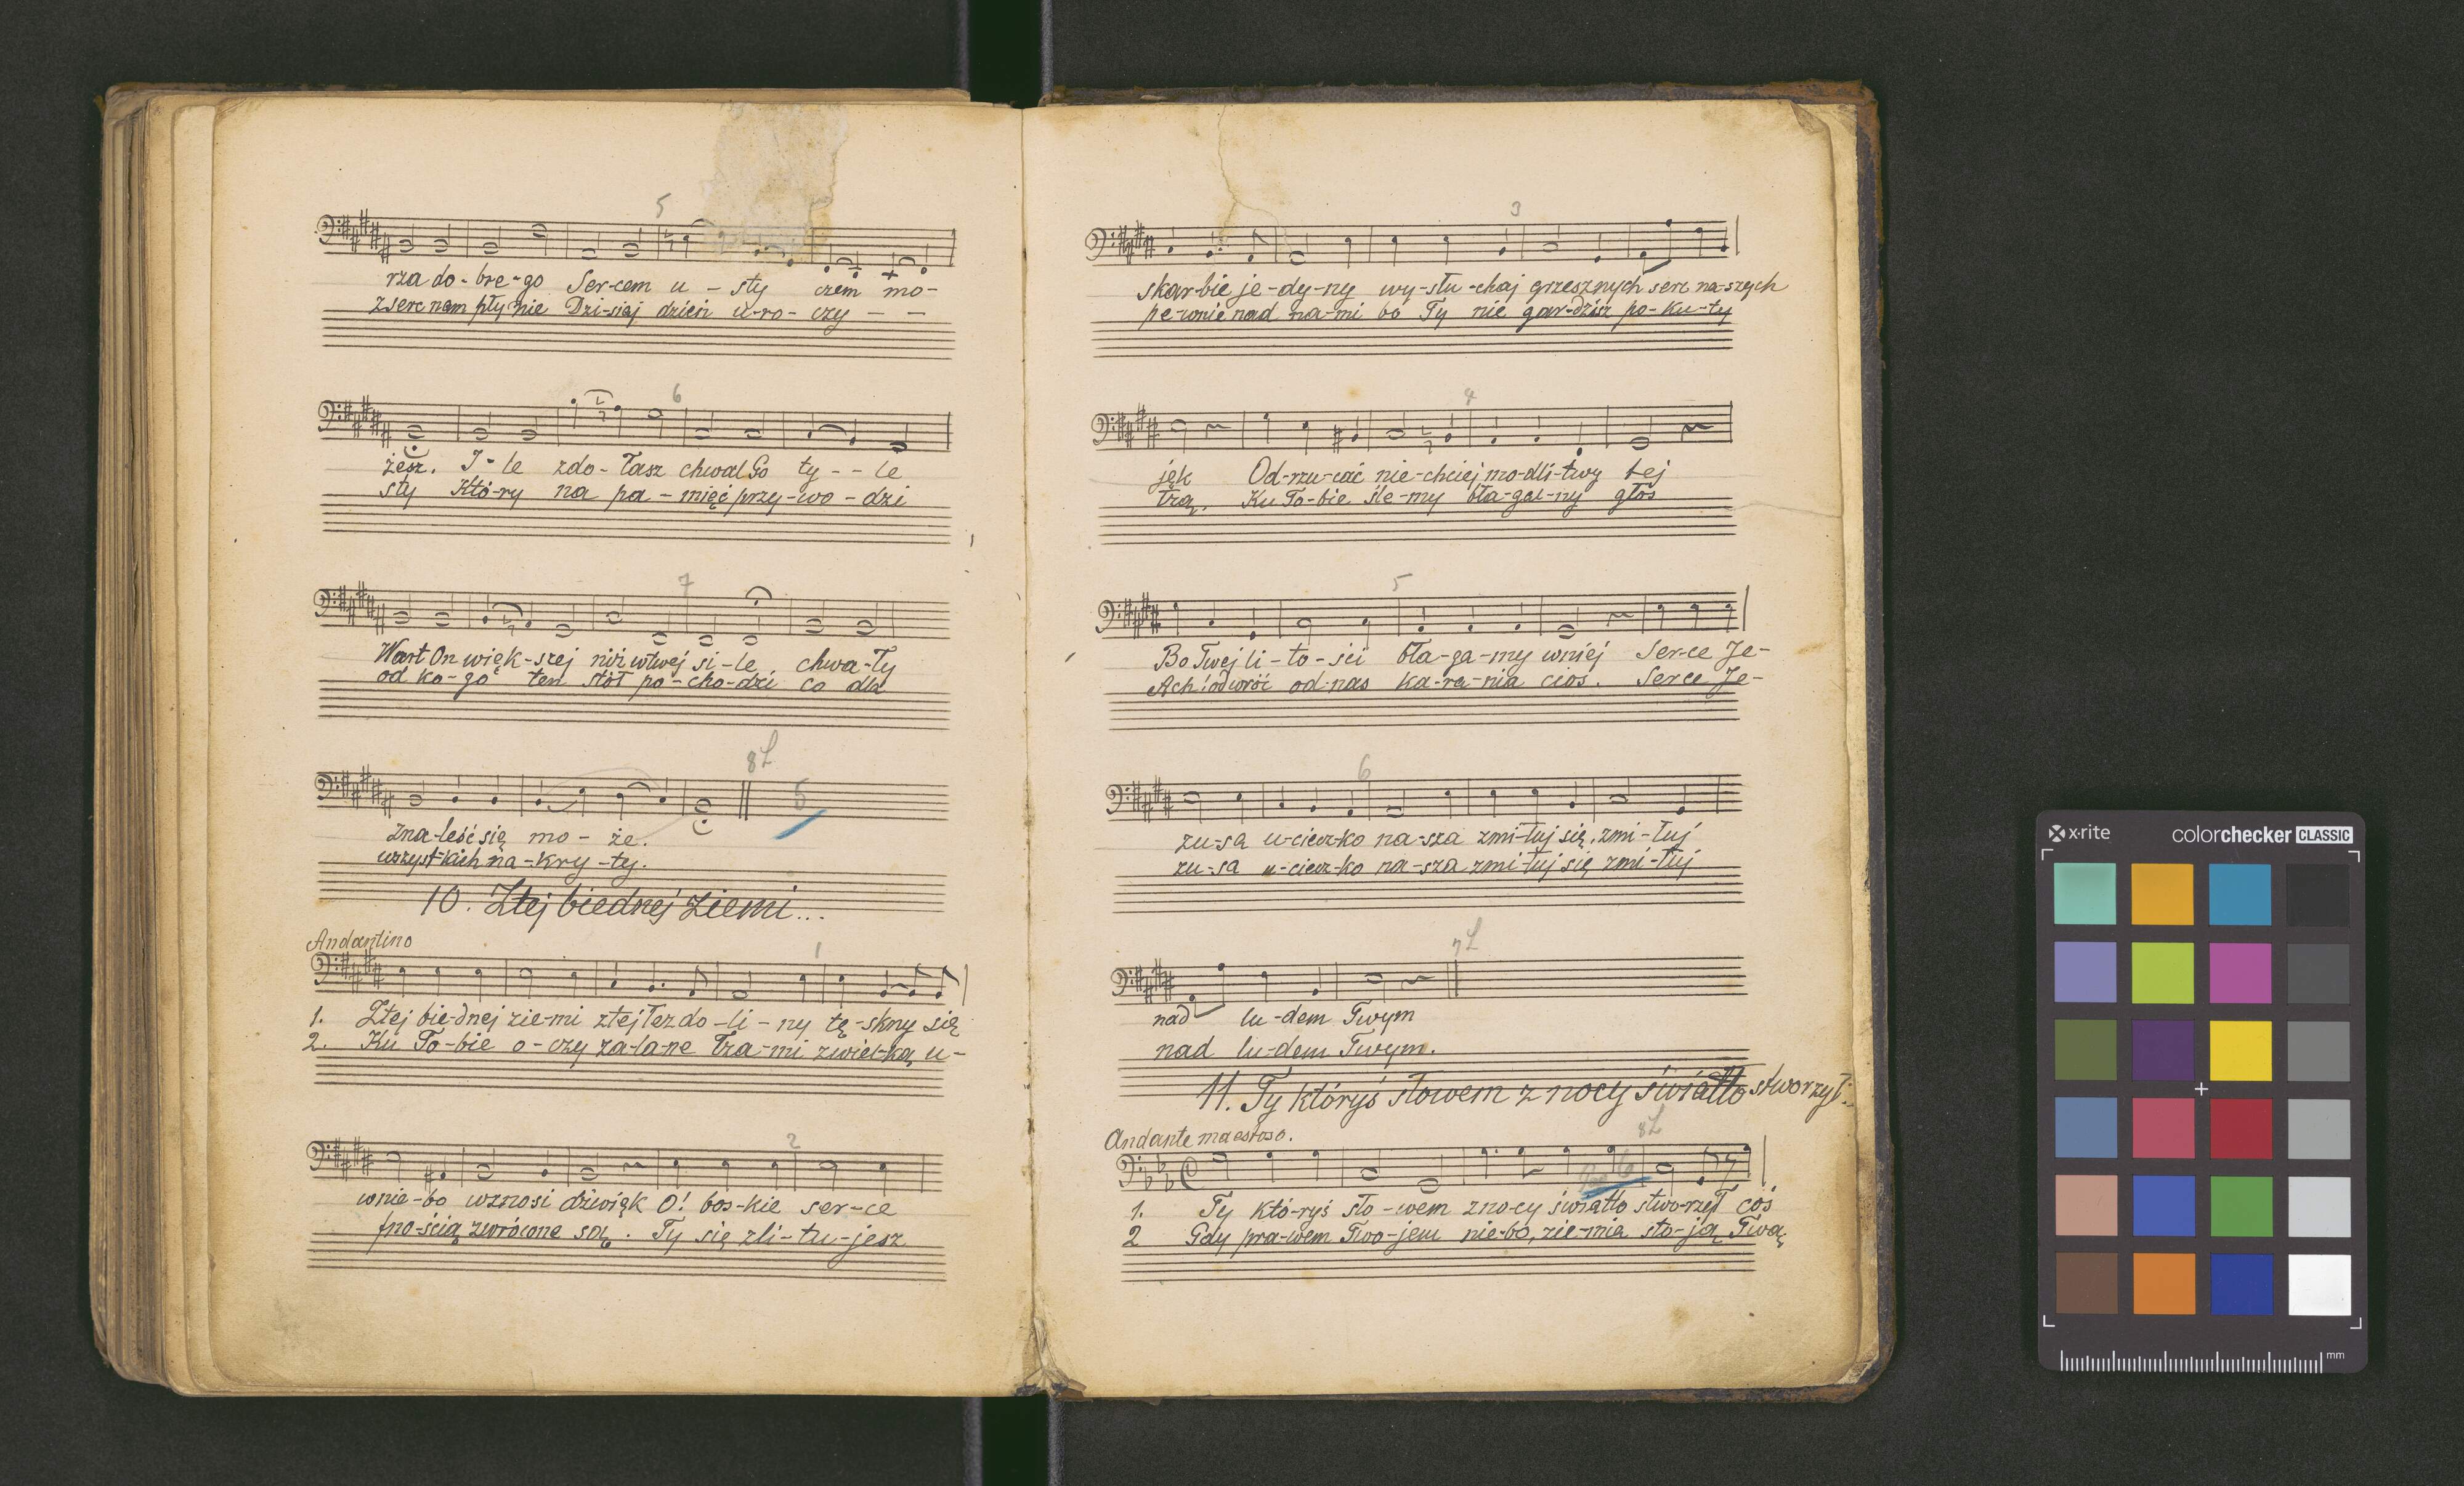 5
rza do-bre-go Ser-cem u - sty czem mo-
z serc nam pły-nie Dzi-siaj dzień u-ro-czy - -
6
żesz. I-le zdo-łasz chwal Go ty - - le
sty Któ-ry na pa-mięć przy-wo-dzi
7
Wart On więk-szej niż w twej si-le chwa-ły
od ko-go ten stół po-cho-dzi co dla
8L
5
zna-leść się mo - że.
wszyst-kich na-kry-ty.
10. Z tej biednej ziemi...
Andantino
1
1. Z tej bie-dnej zie-mi z tej łez do-li-ny tę-skny się
2. Ku To-bie o-czy za-la-ne łza-mi z wiel-ką u-
2
w nie-bo wzno-si dźwięk O! bos-kie ser-ce
fno-ścią zwrócone są. Ty się zli-tu-jesz
3
skar-bie je-dy-ny wy-słu-chaj grzesznych serc na-szych
pe-wnie nad na-mi bo Ty nie gar-dzisz po-ku-ty
4
jęk Od-rzu-cać nie-chciej mo-dli-twy tej
łzą. Ku To-bie śle-my bła-gal-ny głos
5
Bo Twej li-to-ści bła-ga-my w niej Ser-ce Je-
Ach! odwróć od-nas ka-ra-nia cios. Serce Je-
6
zu-sa u-ciecz-ko na-sza zmi-łuj się, zmi-łuj
zu-sa u-ciecz-ko na-sza zmi-łuj się zmi-łuj
7L
nad lu-dem Twym
nad lu-dem Twym.
11. Ty któryś słowem z nocy światło stworzył...
Andante maestoso.
8L
1. Ty któ-ryś sło-wem z no-cy światło stwo-rzył coś
2 Gdy pra-wem Two-jem nie-bo, zie-mia sto-ją Twą
x-rite
colorchecker CLASSIC
mm